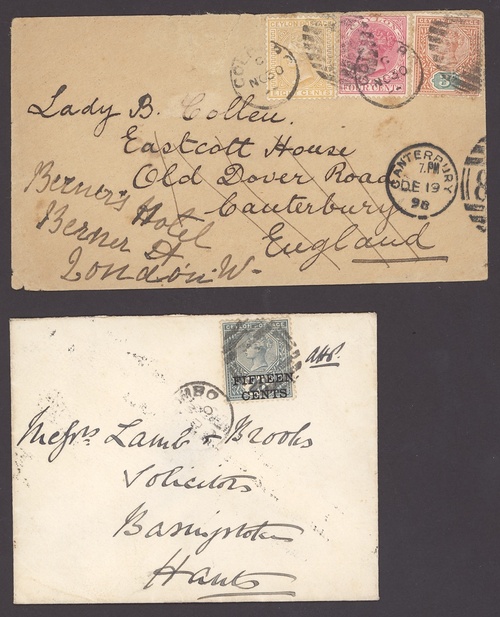 CEYLON POSTAGE
COLOMBO
C
NO 30
NO 30
FOUR CENTS
Lady B. Collen.
Eastcott House
Old Dover Road
Canterbury
England
Berner's Hotel
Berner St
London. W.
CANTERBURY
7. PM
DE 19
98
CEYLON POSTAGE
FIFTEEN
CENTS
Messrs Lamb & Brooks
Solicitors
Basingstoke
Hants